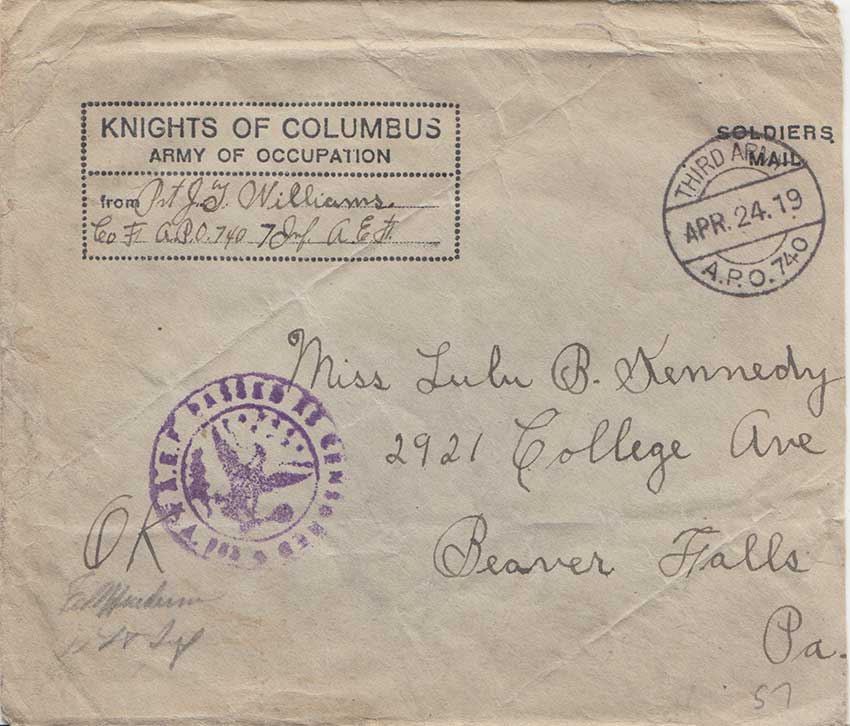 KNIGHTS OF COLUMBUS
ARMY OF OCCUPATION
from Pvt J. T. Williams.
Co F. A.P.O. 740 7 Inf. A.E.F.
SOLDIERS
MAIL
THIRD ARMY
APR. 24. 19
A.P.O. 740
Miss Lulu B. Kennedy
2921 College Ave
Beaver Falls
Pa.
A.E.F. PASSED AS CENSORED
OK
57